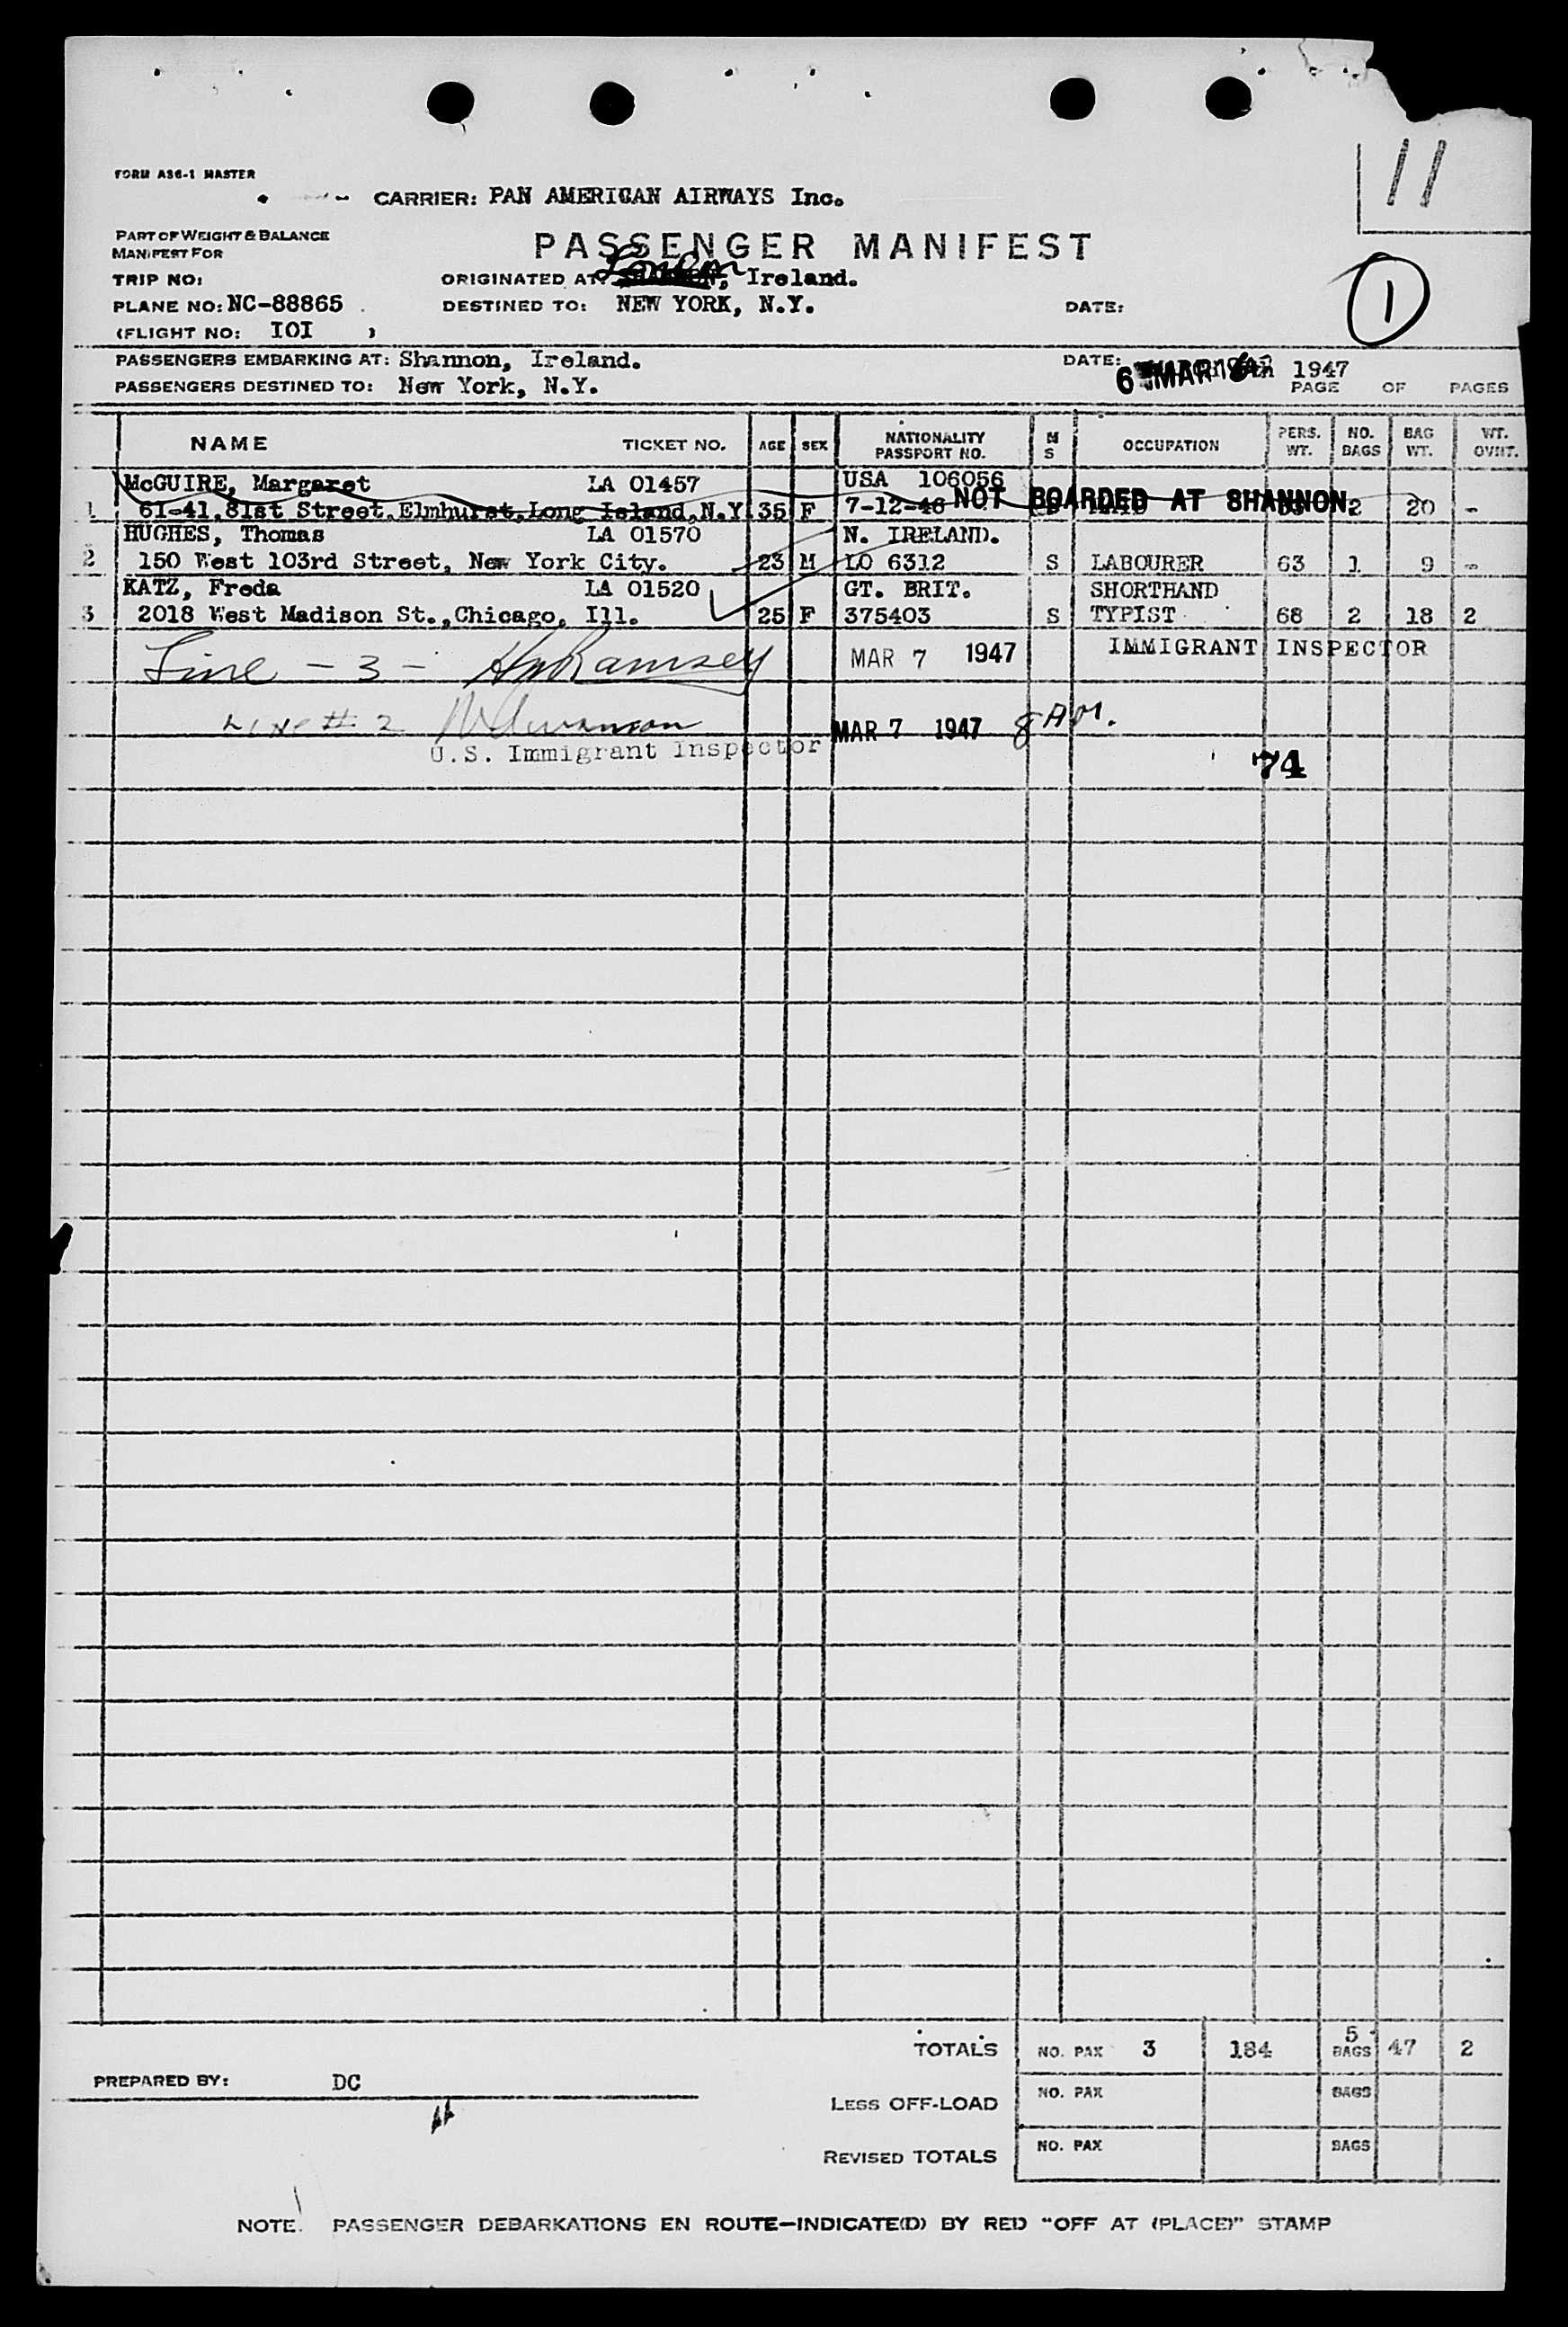 11
FORM A36-1 MASTER
CARRIER: PAN AMERICAN AIRWAYS Inc.
PART OF WEIGHT & BALANCE
MANIFEST FOR
PASSENGER MANIFEST
TRIP NO:
ORIGINATED AT: London, Ireland.
PLANE NO: NC-88865
DESTINED TO: NEW YORK, N.Y.
DATE:
1
(FLIGHT NO: IOI )
PASSENGERS EMBARKING AT: Shannon, Ireland.
DATE: 6 MAR 1947
PASSENGERS DESTINED TO: New York, N.Y.
PAGE OF PAGES
NAME TICKET NO. AGE SEX NATIONALITY PASSPORT NO. M S OCCUPATION PERS. WT. NO. BAGS BAG WT. WT. OVHT.
McGUIRE, Margaret LA 01457 USA 106056
1 61-41,81st Street,Elmhurst,Long Island,N.Y. 35 F 7-12-46 NOT BOARDED AT SHANNON. 2 20 -
HUGHES, Thomas LA 01570 N. IRELAND.
2 150 West 103rd Street, New York City. 23 M LO 6312 S LABOURER 63 1 9 -
KATZ, Freda LA 01520 GT. BRIT. SHORTHAND
3 2018 West Madison St.,Chicago, Ill. 25 F 375403 S TYPIST 68 2 18 2
Line - 3 - Ramsey MAR 7 1947 IMMIGRANT INSPECTOR
Line # 2 MAR 7 1947 8 AM.
U.S. Immigrant Inspector
74
TOTALS NO. PAX 3 184 5 BAGS 47 2
PREPARED BY: DC
LESS OFF-LOAD NO. PAX BAGS
REVISED TOTALS NO. PAX BAGS
NOTE. PASSENGER DEBARKATIONS EN ROUTE—INDICATE(D) BY RED "OFF AT (PLACE)" STAMP